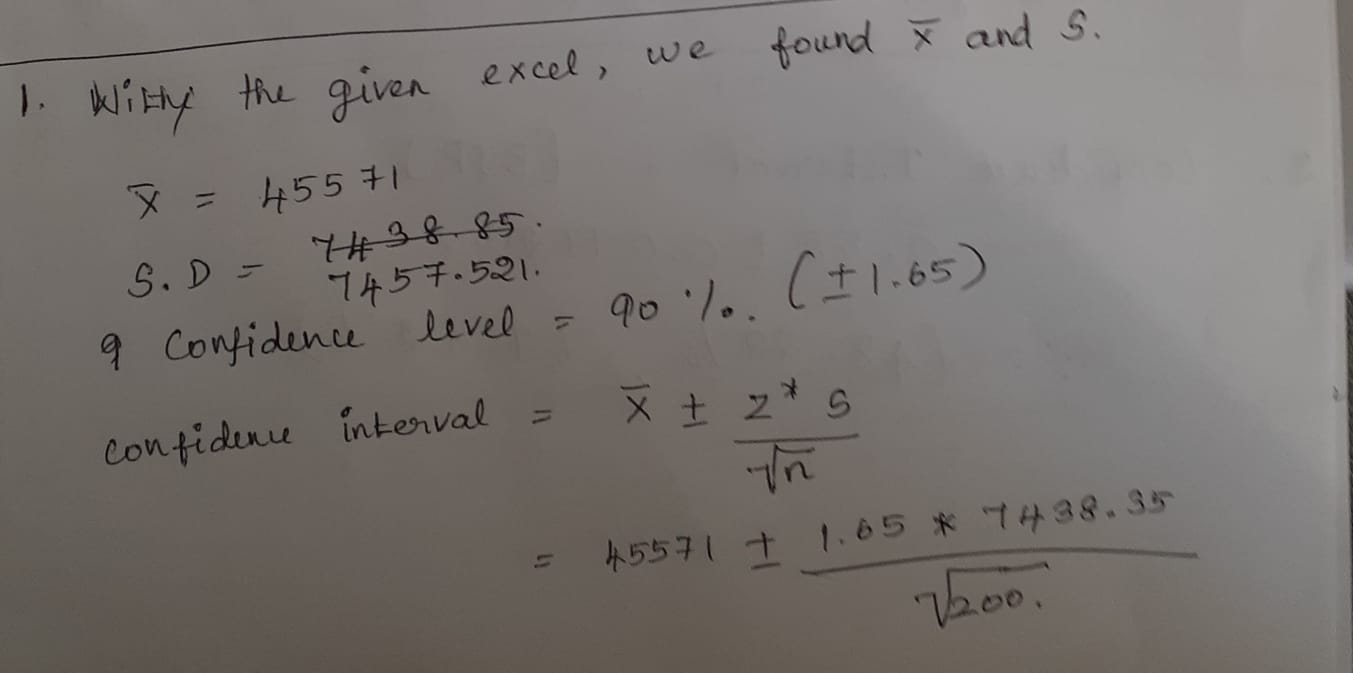 1. With the given excel, we found x̄ and S.
x̄ = 45571
S.D = 7438.85.
7457.521.
9 Confidence level = 90 %. (±1.65)
confidence interval = x̄ ± z* s
√n
= 45571 ± 1.65 * 7438.35
√200.